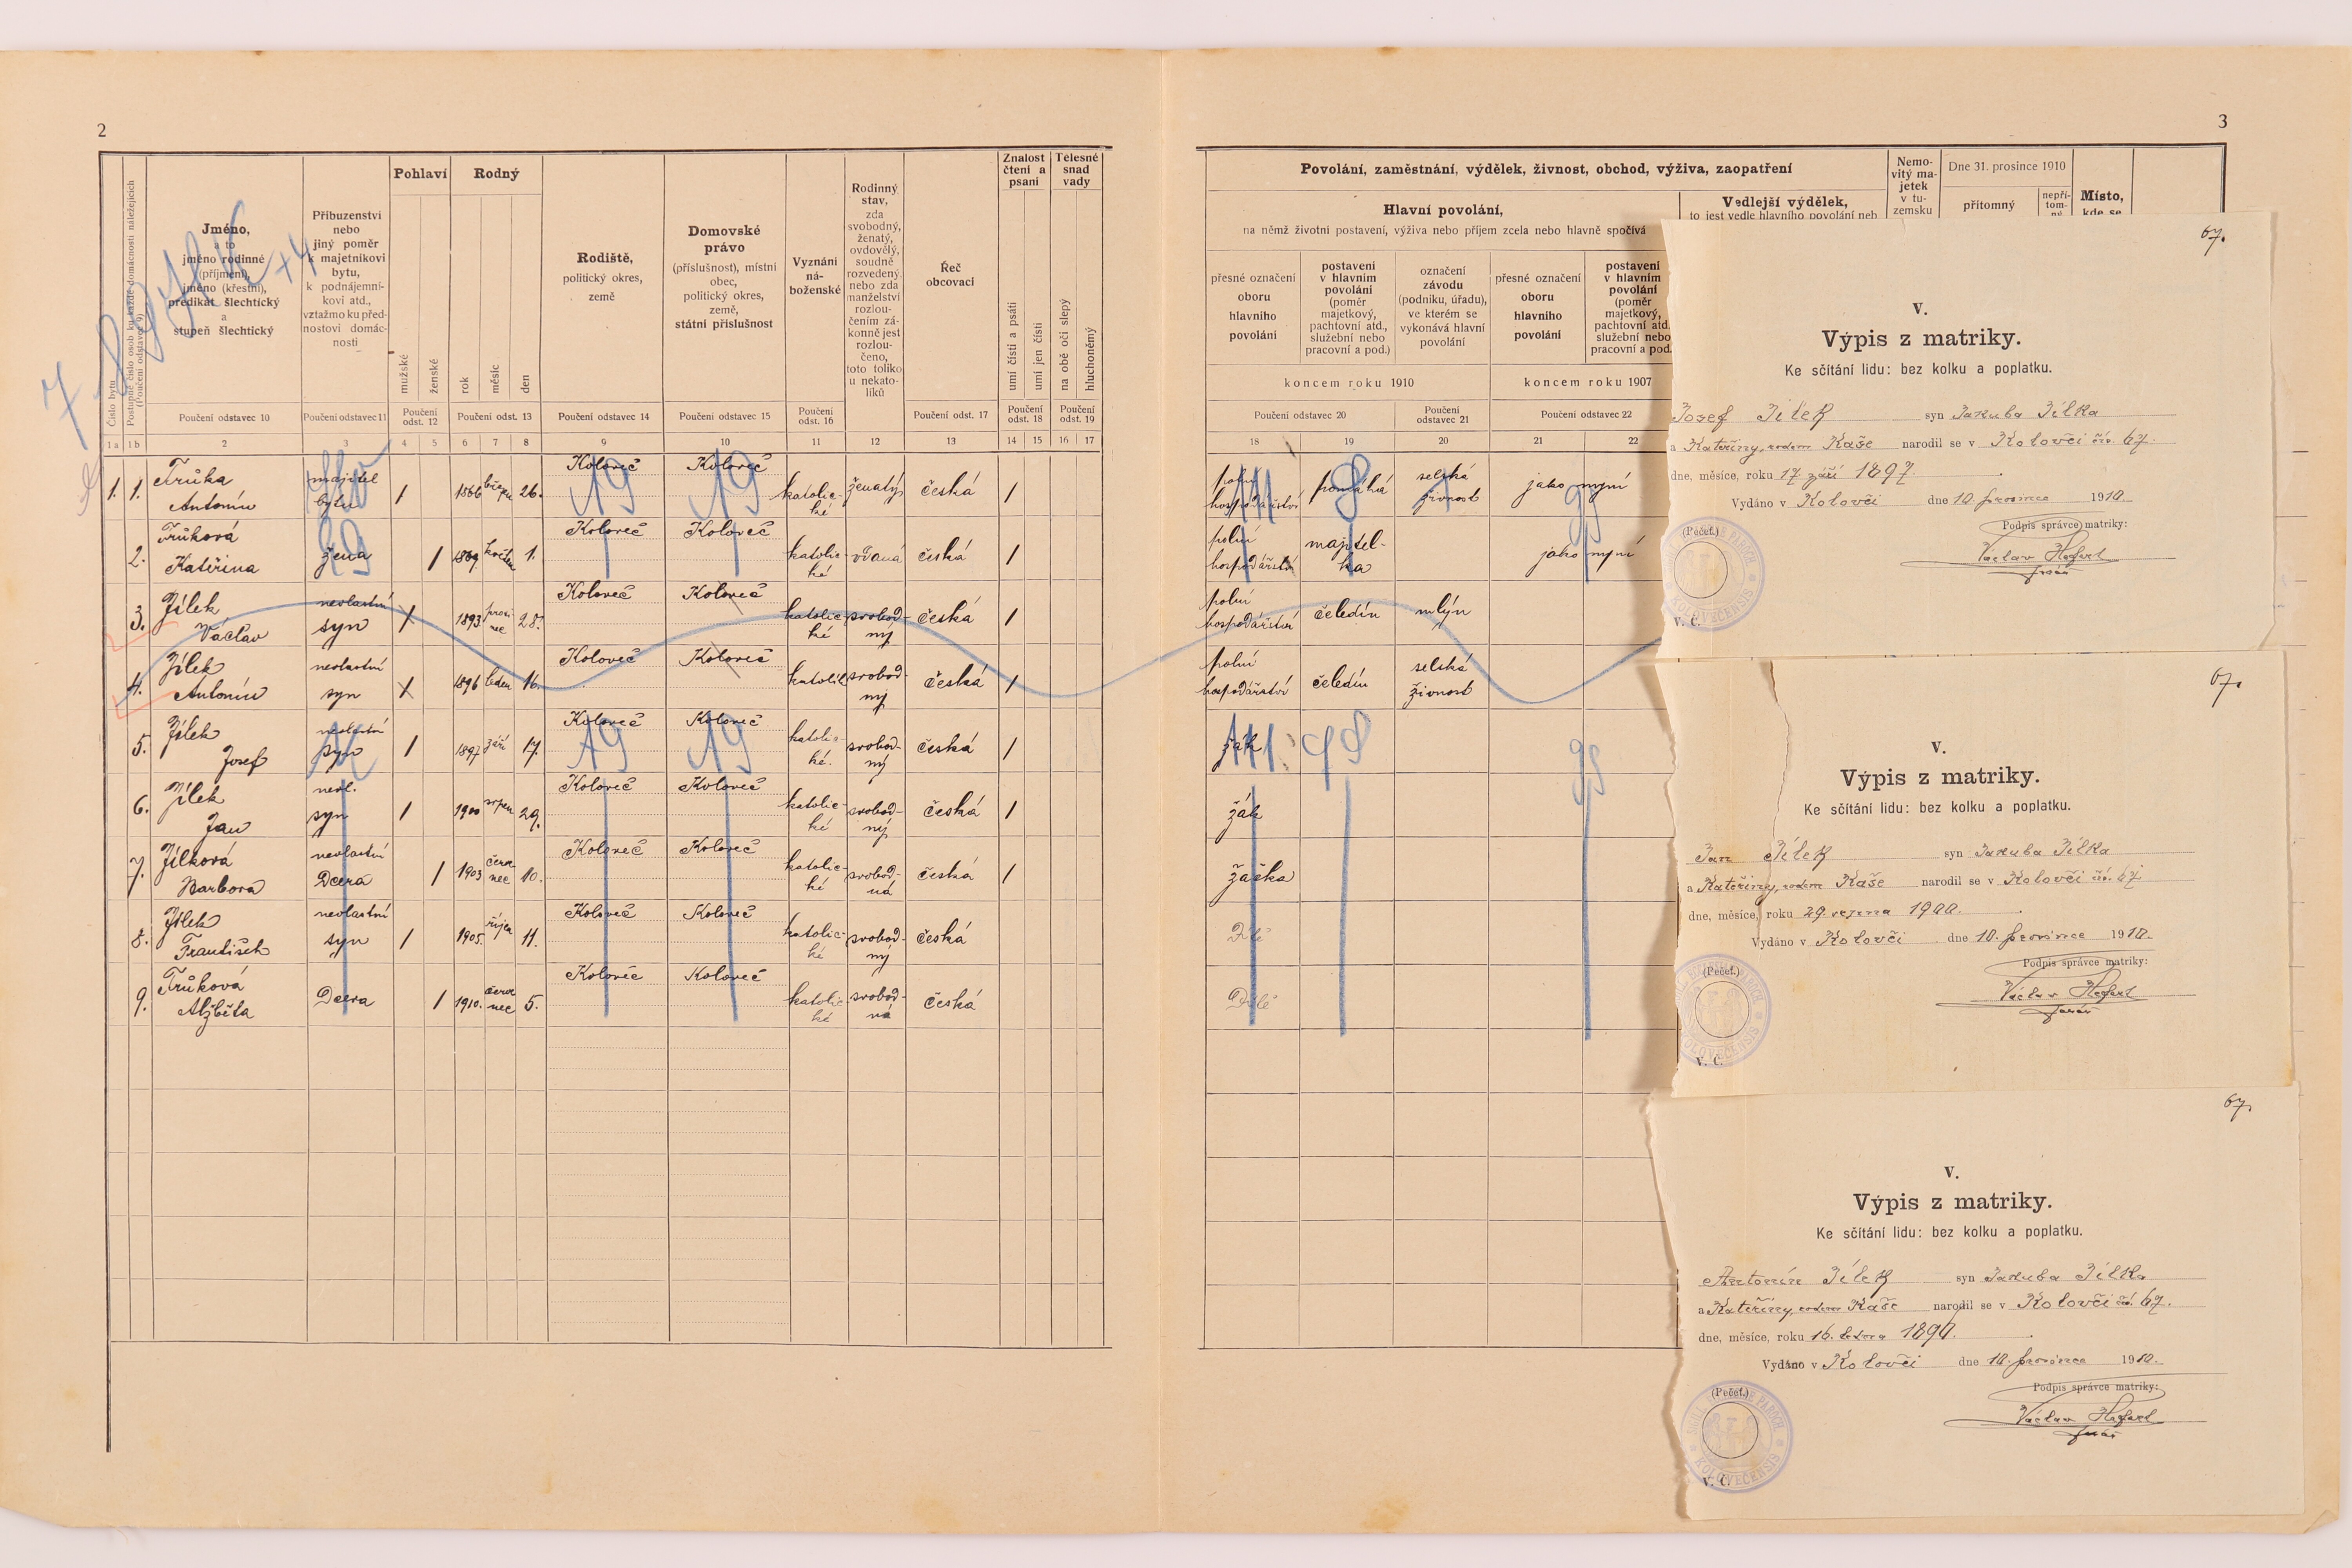 2
3
Číslo bytu
Postupné číslo osob ku každé domácnosti náležejících
(Poučení odstavec 9)
Jméno,
a to
jméno rodinné
(příjmení),
jméno (křestní),
predikát šlechtický
a
stupeň šlechtický
Příbuzenství
nebo
jiný poměr
k majetníkovi
bytu,
k podnájemní-
kovi atd.,
vztažmo ku před-
nostovi domác-
nosti
Pohlaví
mužské
ženské
Rodný
rok
měsíc
den
Rodiště,
politický okres,
země
Domovské
právo
(příslušnost), místní
obec,
politický okres,
země,
státní příslušnost
Vyznání
ná-
boženské
Rodinný
stav,
zda
svobodný,
ženatý,
ovdovělý,
soudně
rozvedený,
nebo zda
manželství
rozlou-
čením zá-
konně jest
rozlou-
čeno,
toto toliko
u nekato-
líků
Řeč
obcovací
Znalost
čtení a
psaní
umí čísti a psáti
umí jen čísti
Tělesné
snad
vady
na obě oči slepý
hluchoněmý
Poučení odstavec 10
Poučení odstavec 11
Poučení
odst. 12
Poučení odst. 13
Poučení odstavec 14
Poučení odstavec 15
Poučení
odst. 16
Poučení odst. 17
Poučení
odst. 18
Poučení
odst. 19
1a 1b 2 3 4 5 6 7 8 9 10 11 12 13 14 15 16 17
Povolání, zaměstnání, výdělek, živnost, obchod, výživa, zaopatření
Hlavní povolání,
na němž životní postavení, výživa nebo příjem zcela nebo hlavně spočívá
Vedlejší výdělek,
to jest vedle hlavního povolání neb
Nemo-
vitý ma-
jetek
v tu-
zemsku
Dne 31. prosince 1910
přítomný
nepří-
tom-
ný
Místo,
kde se
přesné označení
oboru
hlavního
povolání
postavení
v hlavním
povolání
(poměr
majetkový,
pachtovní atd.,
služební nebo
pracovní a pod.)
označení
závodu
(podniku, úřadu),
ve kterém se
vykonává hlavní
povolání
přesné označení
oboru
hlavního
povolání
postavení
v hlavním
povolání
(poměr
majetkový,
pachtovní atd.
služební nebo
pracovní a pod.
koncem roku 1910
koncem roku 1907
Poučení odstavec 20
Poučení
odstavec 21
Poučení odstavec 22
18 19 20 21 22
1. 1. Trůka Antonín majitel bytu 1 1866 březen 26. Koloveč Koloveč katolic-ké ženatý česká 1
polní hospodářství pomáhá selská živnost jako nyní
2. Trůková Kateřina žena 1 1869 květen 1. Koloveč Koloveč katolic-ké vdaná česká 1
polní hospodářství majitel-ka jako nyní
3. Jílek Václav nevlastní syn 1 1893 prosi nec 28. Koloveč Koloveč katolic-ké svobod-ný česká 1
polní hospodářství čeledín mlýn
4. Jílek Antonín nevlastní syn 1 1896 leden 16. Koloveč Koloveč svobod-ný česká 1
polní hospodářství čeledín selská živnost
5. Jílek Josef nevlastní syn 1 1897 září 17. Koloveč Koloveč katolic-ké. svobod-ný česká 1
žák
6. Jílek Jan nevl. syn 1 1900 srpen 29. Koloveč Koloveč katolic-ké svobod-ný česká 1
žák
7. Jílková Barbora nevlastní Dcera 1 1903 červe nec 10. Koloveč Koloveč katolic-ké svobod-ná česká 1
žačka
8. Jílek František nevlastní syn 1 1905. říjen 11. Koloveč Koloveč katolic-ké svobod-ný česká
Dítě
9. Trůková Alžběta Dcera 1 1910. červe nec 5. Koloveč Koloveč katolic-ké svobod-ná česká
Dítě
67.
V.
Výpis z matriky.
Ke sčítání lidu: bez kolku a poplatku.
Josef Jílek syn Jakuba Jílka
a Kateřiny, rodem Kaše narodil se v Kolovči čís. 67.
dne, měsíce, roku 17 září 1897.
Vydáno v Kolovči dne 10. prosince 1910.
Podpis správce matriky:
(Pečeť.)
Václav Hefert
farář
V. Č.
67.
V.
Výpis z matriky.
Ke sčítání lidu: bez kolku a poplatku.
Jan Jílek syn Jakuba Jílka
a Kateřiny, rodem Kaše narodil se v Kolovči čís. 67
dne, měsíce, roku 29. srpna 1900.
Vydáno v Kolovči dne 10. prosince 1910.
Podpis správce matriky:
(Pečeť.)
Václav Hefert
farář
V. Č.
67.
V.
Výpis z matriky.
Ke sčítání lidu: bez kolku a poplatku.
Antonín Jílek syn Jakuba Jílka
a Kateřiny, rodem Kaše narodil se v Kolovči čís. 67.
dne, měsíce, roku 16. ledna
Vydáno v Kolovči dne 10. prosince 1910.
Podpis správce matriky:
(Pečeť.)
Václav Hefert
farář
V. Č.